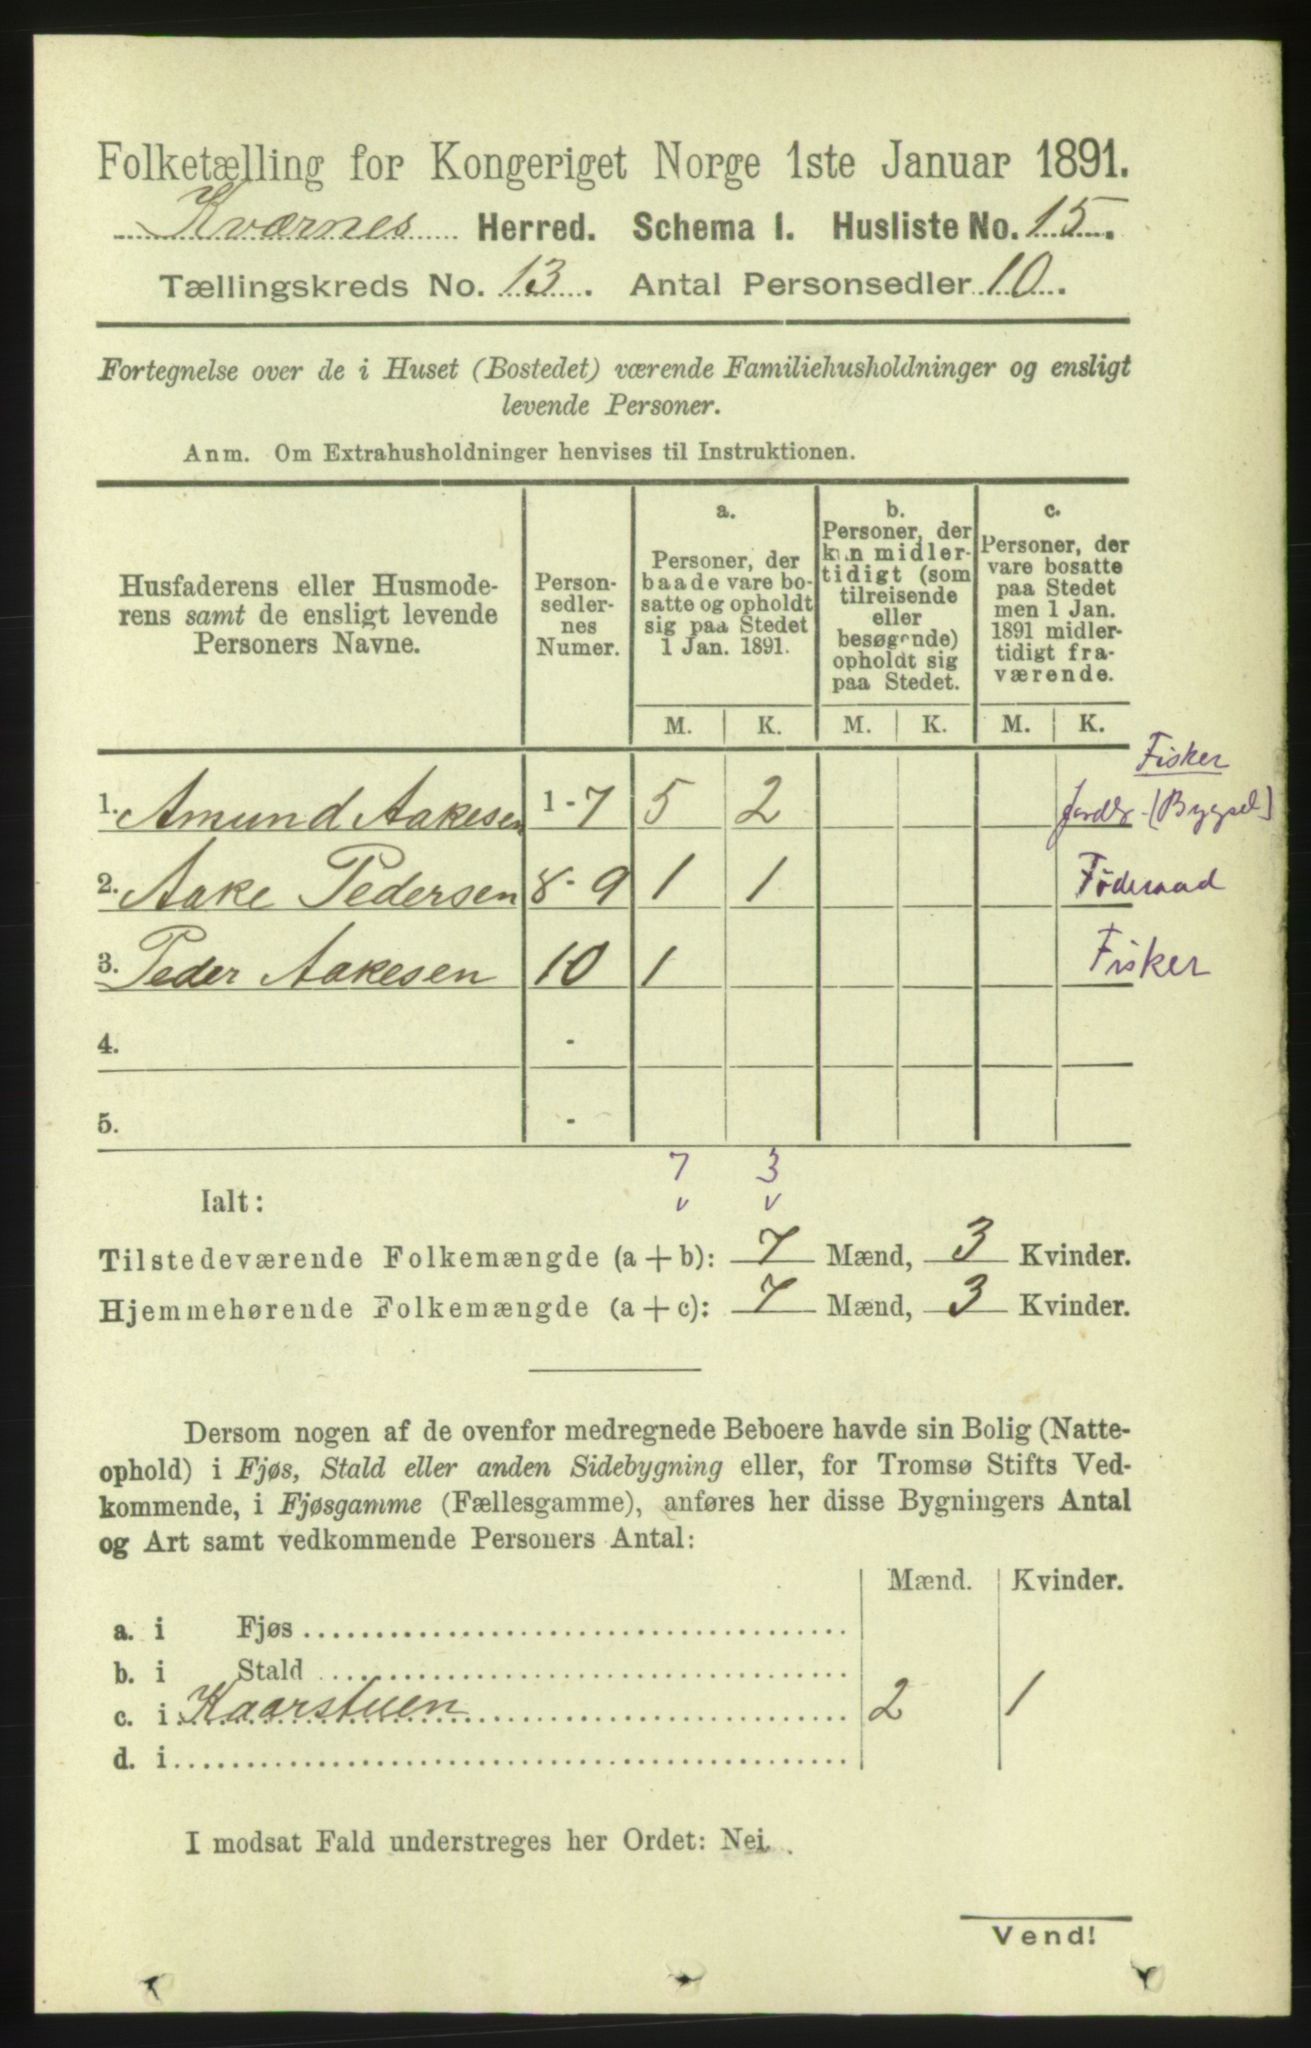 Folketælling for Kongeriget Norge 1ste Januar 1891.
Kværnes Herred. Schema 1. Husliste No. 15.
Tællingskreds No. 13. Antal Personsedler 10.
Fortegnelse over de i Huset (Bostedet) værende Familiehusholdninger og ensligt
levende Personer.
Anm. Om Extrahusholdninger henvises til Instruktionen.
Husfaderens eller Husmode-
rens samt de ensligt levende
Personers Navne.
Person-
sedler-
nes
Numer.
a.
Personer, der
baade vare bo-
satte og opholdt
sig paa Stedet
1 Jan. 1891.
b.
Personer, der
kun midler-
tidigt (som
tilreisende
eller
besøgende)
opholdt sig
paa Stedet.
c.
Personer, der
vare bosatte
paa Stedet
men 1 Jan.
1891 midler-
tidigt fra-
værende.
M. K. M. K. M. K.
Fisker
1. Amund Aakesen 1-7 5 2 (Bygsel)
2. Aake Pedersen 8-9 1 1 Föderaad
3. Peder Aakesen 10 1 Fisker
4. -
5. -
7 3
v v
Ialt:
Tilstedeværende Folkemængde (a + b): 7 Mænd, 3 Kvinder.
Hjemmehørende Folkemængde (a + c): 7 Mænd, 3 Kvinder.
Dersom nogen af de ovenfor medregnede Beboere havde sin Bolig (Natte-
ophold) i Fjøs, Stald eller anden Sidebygning eller, for Tromsø Stifts Ved-
kommende, i Fjøsgamme (Fællesgamme), anføres her disse Bygningers Antal
og Art samt vedkommende Personers Antal:
Mænd. Kvinder.
a. i Fjøs
b. i Stald
c. i Kaarstuen 2 1
d. i
I modsat Fald understreges her Ordet: Nei.
Vend!